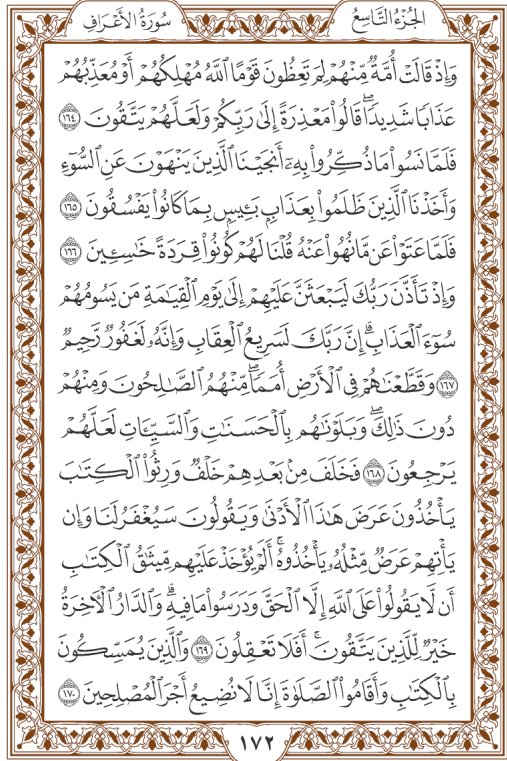 الجُزْءُ التَّاسِعُ سُورَةُ الأَعْرَافِ
وَإِذْ قَالَتْ أُمَّةٌ مِّنْهُمْ لِمَ تَعِظُونَ قَوْمًا ٱللَّهُ مُهْلِكُهُمْ أَوْ مُعَذِّبُهُمْ
عَذَابًا شَدِيدًا ۖ قَالُوا۟ مَعْذِرَةً إِلَىٰ رَبِّكُمْ وَلَعَلَّهُمْ يَتَّقُونَ ١٦٤
فَلَمَّا نَسُوا۟ مَا ذُكِّرُوا۟ بِهِۦٓ أَنجَيْنَا ٱلَّذِينَ يَنْهَوْنَ عَنِ ٱلسُّوٓءِ
وَأَخَذْنَا ٱلَّذِينَ ظَلَمُوا۟ بِعَذَابٍۭ بَـِٔيسٍۭ بِمَا كَانُوا۟ يَفْسُقُونَ ١٦٥
فَلَمَّا عَتَوْا۟ عَن مَّا نُهُوا۟ عَنْهُ قُلْنَا لَهُمْ كُونُوا۟ قِرَدَةً خَـٰسِـِٔينَ ١٦٦
وَإِذْ تَأَذَّنَ رَبُّكَ لَيَبْعَثَنَّ عَلَيْهِمْ إِلَىٰ يَوْمِ ٱلْقِيَـٰمَةِ مَن يَسُومُهُمْ
سُوٓءَ ٱلْعَذَابِ ۗ إِنَّ رَبَّكَ لَسَرِيعُ ٱلْعِقَابِ وَإِنَّهُۥ لَغَفُورٌ رَّحِيمٌ
١٦٧ وَقَطَّعْنَـٰهُمْ فِى ٱلْأَرْضِ أُمَمًا ۖ مِّنْهُمُ ٱلصَّـٰلِحُونَ وَمِنْهُمْ
دُونَ ذَٰلِكَ ۖ وَبَلَوْنَـٰهُم بِٱلْحَسَنَـٰتِ وَٱلسَّيِّـَٔاتِ لَعَلَّهُمْ
يَرْجِعُونَ ١٦٨ فَخَلَفَ مِنۢ بَعْدِهِمْ خَلْفٌ وَرِثُوا۟ ٱلْكِتَـٰبَ
يَأْخُذُونَ عَرَضَ هَـٰذَا ٱلْأَدْنَىٰ وَيَقُولُونَ سَيُغْفَرُ لَنَا وَإِن
يَأْتِهِمْ عَرَضٌ مِّثْلُهُۥ يَأْخُذُوهُ ۚ أَلَمْ يُؤْخَذْ عَلَيْهِم مِّيثَـٰقُ ٱلْكِتَـٰبِ
أَن لَّا يَقُولُوا۟ عَلَى ٱللَّهِ إِلَّا ٱلْحَقَّ وَدَرَسُوا۟ مَا فِيهِ ۗ وَٱلدَّارُ ٱلْـَٔاخِرَةُ
خَيْرٌ لِّلَّذِينَ يَتَّقُونَ ۗ أَفَلَا تَعْقِلُونَ ١٦٩ وَٱلَّذِينَ يُمَسِّكُونَ
بِٱلْكِتَـٰبِ وَأَقَامُوا۟ ٱلصَّلَوٰةَ إِنَّا لَا نُضِيعُ أَجْرَ ٱلْمُصْلِحِينَ ١٧٠
١٧٢